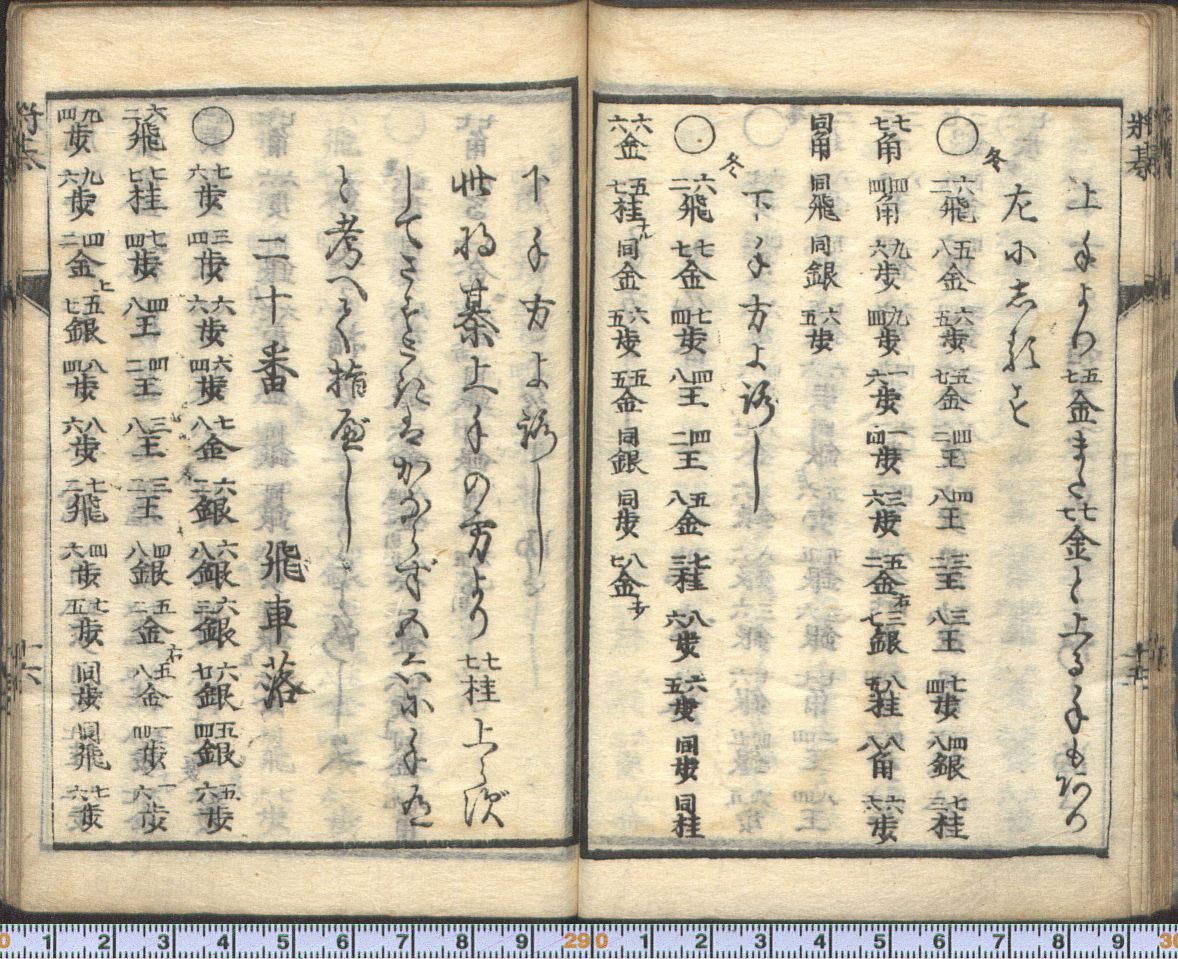 将棊
上手より五七金また七七金と上る手もあり
左に志るす
○ 六二飛 五八金 六五歩 五七金 四二王 四八王 三二王 三八王 七四歩 四八銀 七三桂
七七角 四四角 九六歩 九四歩 一六歩 一四歩 三六歩 五二金右 三七銀 八五桂 八八角 六六歩
同角 同飛 同銀 六五歩
下手方よろし
○ 六二飛 七七金 七四歩 四八王 四二王 五八金 七三桂 八六歩 六五歩 同歩 同桂
六六金 五七桂ナル 同金 六五歩 五五金 同銀 同歩 八七金打
下手方よろし
此将棊上手の方より七七桂上らず
してさすときはかならず五六に手有
と考へて指べし
二十番 飛車落
○ 七六歩 三四歩 六六歩 六四歩 七八金 六二銀 六八銀 六三銀 六七銀 五四銀 五六歩
六二飛 七七桂 七四歩 四八王 四二王 三八王 三二王 四八銀 五二金右 五八金 一四歩 一六歩
九四歩 九六歩 四二金上 五七銀 八四歩 八六歩 七二飛 四六歩 七五歩 同歩 同飛 七六歩